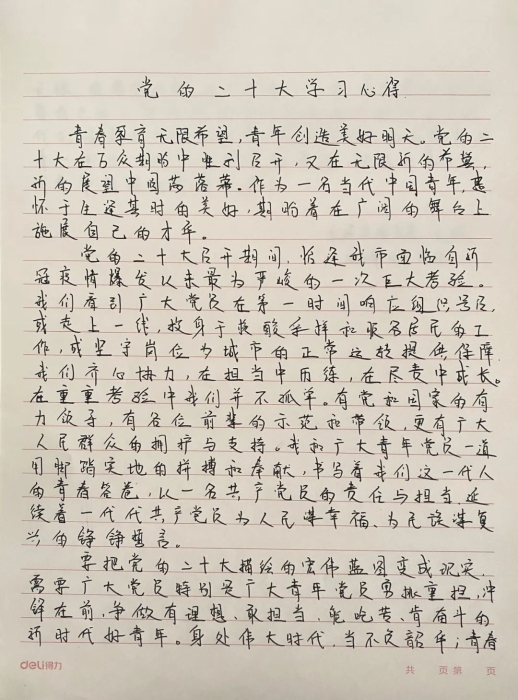 党的二十大学习心得
青春孕育无限希望,青年创造美好明天。党的二
十大在万众期盼中胜利召开,又在无限新的希冀,
新的展望中圆满落幕。作为一名当代中国青年,感
怀于生逢其时的美好,期盼着在广阔的舞台上
施展自己的才华。
党的二十大召开期间,恰逢我市面临自新
冠疫情爆发以来最为严峻的一次巨大考验。
我们看到广大党员在第一时间响应组织号召,
或走上一线,投身于核酸采样和服务居民的工
作,或坚守岗位为城市的正常运转提供保障
我们齐心协力,在担当中历练,在尽责中成长。
在重重考验中我们并不孤单。有党和国家的有
力领导,有各位前辈的示范和带领,更有广大
人民群众的拥护与支持。我和广大青年党员一道
用脚踏实地的拼搏和奉献,书写着我们这一代人
的青春答卷,以一名共产党员的责任与担当,延
续着一代代共产党员为人民谋幸福、为民族谋复
兴的铮铮誓言。
要把党的二十大描绘的宏伟蓝图变成现实,
需要广大党员特别是广大青年党员勇挑重担,冲
锋在前,争做有理想、敢担当、能吃苦、肯奋斗的
新时代好青年。身处伟大时代,当不负韶华;青春
deli得力
共 页第 页